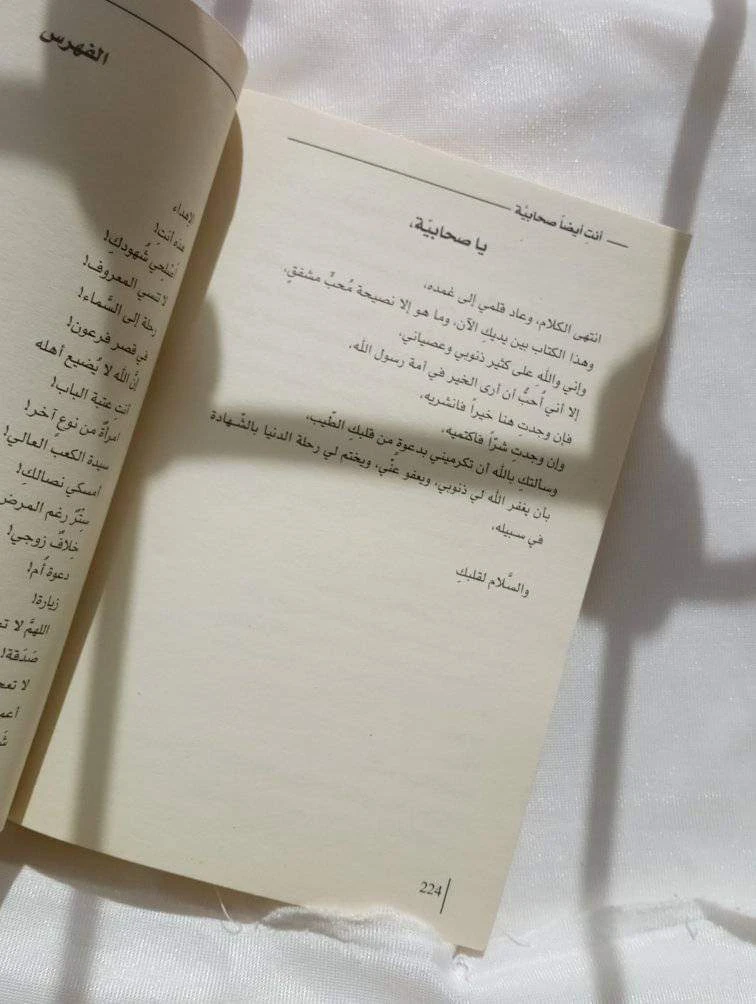 أنتِ أيضاً صحابيّة
يا صحابيّة،
انتهى الكلام، وعاد قلمي إلى غمده،
وهذا الكتاب بين يديكِ الآن، وما هو إلا نصيحة مُحبٍّ مشفقٍ،
وإني واللهِ على كثير ذنوبي وعصياني،
إلا أني أُحبُّ أن أرى الخير في أمة رسول الله،
فإن وجدتِ هنا خيراً فانشريه،
وإن وجدتِ شرّاً فاكتميه،
وسألتكِ بالله أن تكرميني بدعوةٍ من قلبكِ الطّيب،
بأن يغفر الله لي ذنوبي، ويعفو عنّي، ويختم لي رحلة الدنيا بالشّهادة
في سبيله،
والسَّلام لقلبكِ
224
الفهرس
الإهداء
هذه أنتِ!
أصْلِحي شُهودكِ!
لا تنسي المعروف!
رحلة إلى السَّماء!
في قصر فرعون!
إنَّ الله لا يُضيع أهله
أنتِ عتبة الباب!
امرأةٌ من نوع آخر!
سيدة الكعب العالي!
أمسكي نصالكِ!
سِتْرٌ رغم المرض
خِلافٌ زوجي!
دعوة أُم!
زيارة!
اللهمَّ لا
صَدَقة!
لا